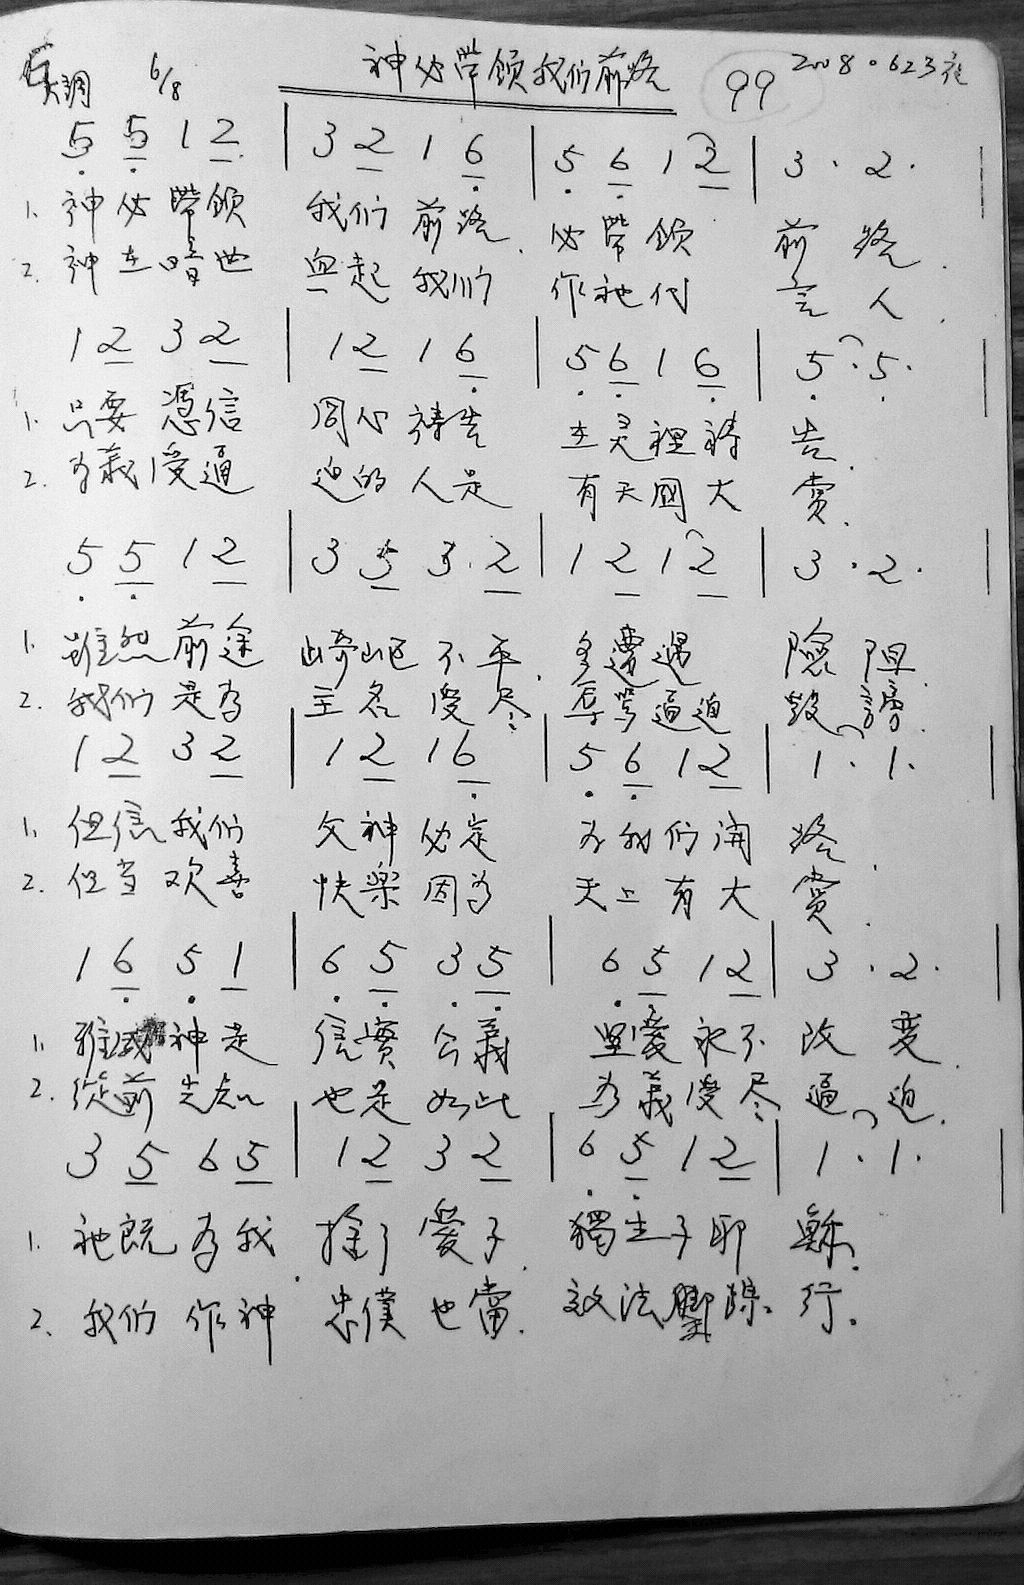 大調 6/8 神必带领我们前路 99 2008.623夜
5 5 1 2 | 3 2 1 6 | 5 6 1 2 | 3 · 2 · |
1. 神必帶领 我们前路. 必帶领 前路.
2. 神在暗世 兴起我们 作祂代 言人.
1 2 3 2 | 1 2 1 6 | 5 6 1 6 | 5 · 5 · |
1. 只要憑信 同心祷告 在灵裡祷 告.
2. 为義受逼 迫的人是 有天國大 賞.
5 5 1 2 | 3 5 3 · 2 | 1 2 1 2 | 3 · 2 · |
1. 雖然前途 崎岖不平. 多遭遇 險阻.
2. 我们是为 主名受尽 辱骂逼迫 毁謗.
1 2 3 2 | 1 2 1 6 | 5 6 1 2 | 1 · 1 · |
1. 但信我们 父神必定 为我们開 路.
2. 但当欢喜 快樂因为 天上有大 賞.
1 6 5 1 | 6 5 3 5 | 6 5 1 2 | 3 · 2 · |
1. 雅威神是 信實公義 坚愛永不 改变.
2. 從前先知 也是如此 为義受尽 逼迫.
3 5 6 5 | 1 2 3 2 | 6 5 1 2 | 1 · 1 · |
1. 祂既为我 捨了愛子. 獨生子耶 穌.
2. 我们作神 忠僕也當. 效法腳踪 行.